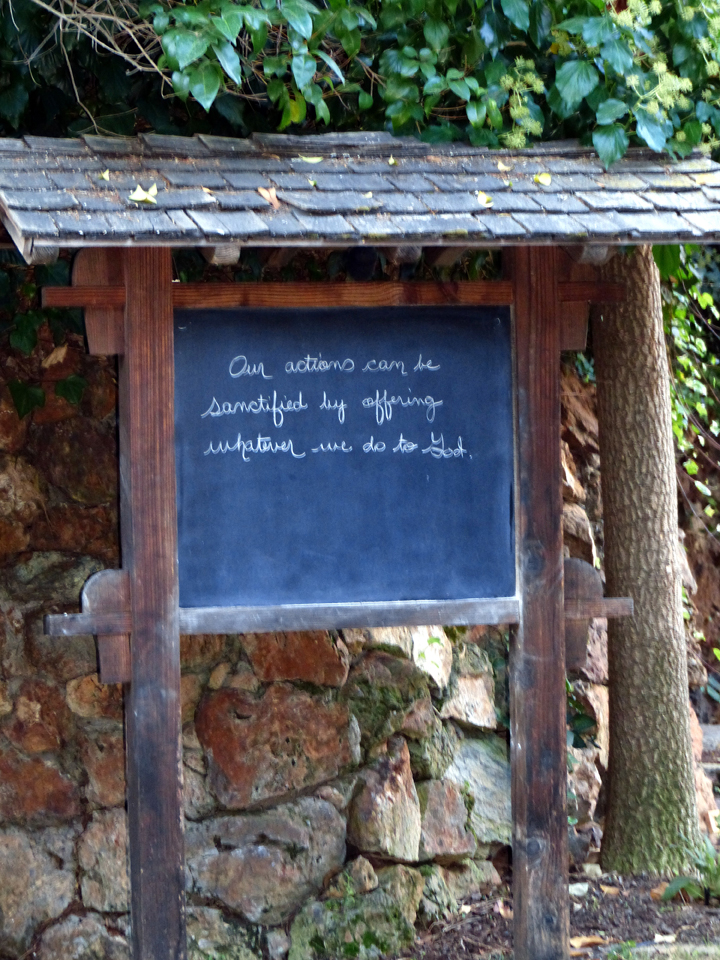 Our actions can be
sanctified by offering
whatever we do to God.